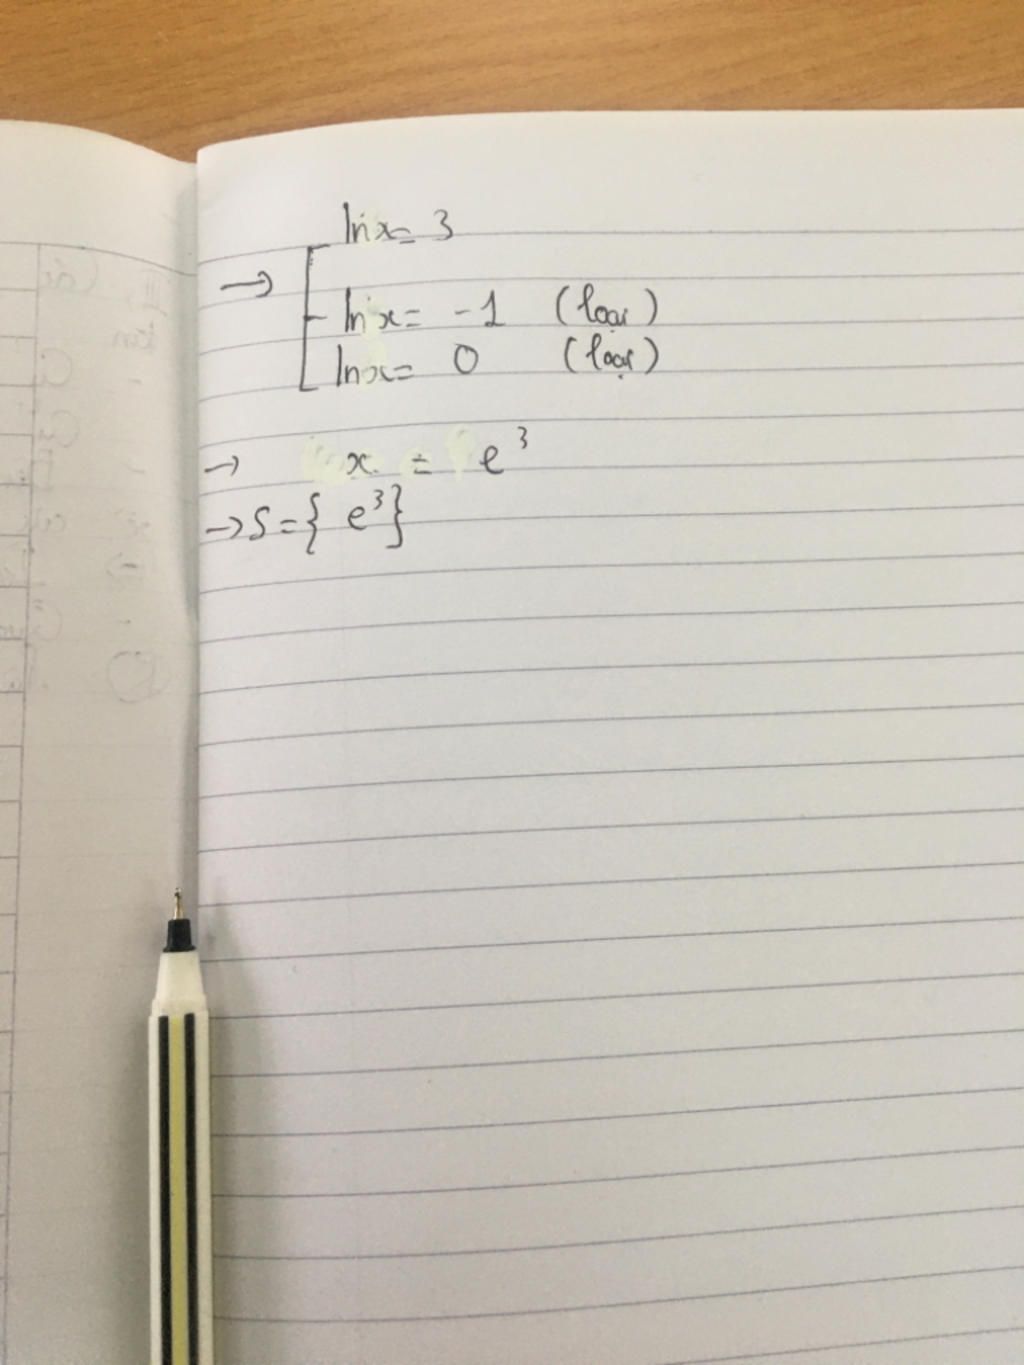 ln x = 3
→ ln x = -1 (loại)
ln x = 0 (loại)
→ x = e³
→ S = { e³ }